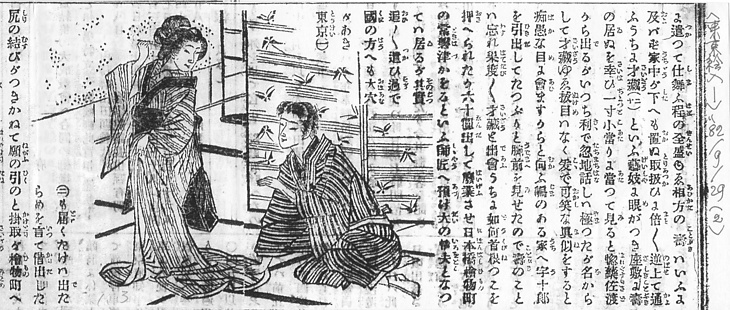 〈東京絵入〉 → '82/9/29(2)
よ遣つて仕舞ふ程の全盛ゆゑ相方の 壽 ハいふよ
及バを家中が下へも置ぬ取扱ひよ倍〱逆上て通
ふうちよ才藏(一)といふ藝妓よ眼がつき座敷よ壽
の居ぬを幸ひ一寸小當りよ當つて見ると惚藥佐渡
から出るがいつち利て忽地話しハ極したが名から
して才藏ゆゑ拔目ハなく爰で可笑な眞似をすると
痴愚な目よ會ますからと向ふ嶋のある家へ宇十郎
を引出してたつぷりと腕前を見せたので壽のこと
ハ忘れ果度〱才藏と出會うちよ如何首松つこを
押へられたか六十圓出して廢業させ日本橋檜物町
の常磐津かをるといふ師匠へ預け大の夫となつ
て居るが其實
追〱遣ひ過で
國の方へも大穴
があき
東京
も届くだけハ出た
らめを言て借出した
尻の結びがつきかねて願引のと掛取が檜物町へ